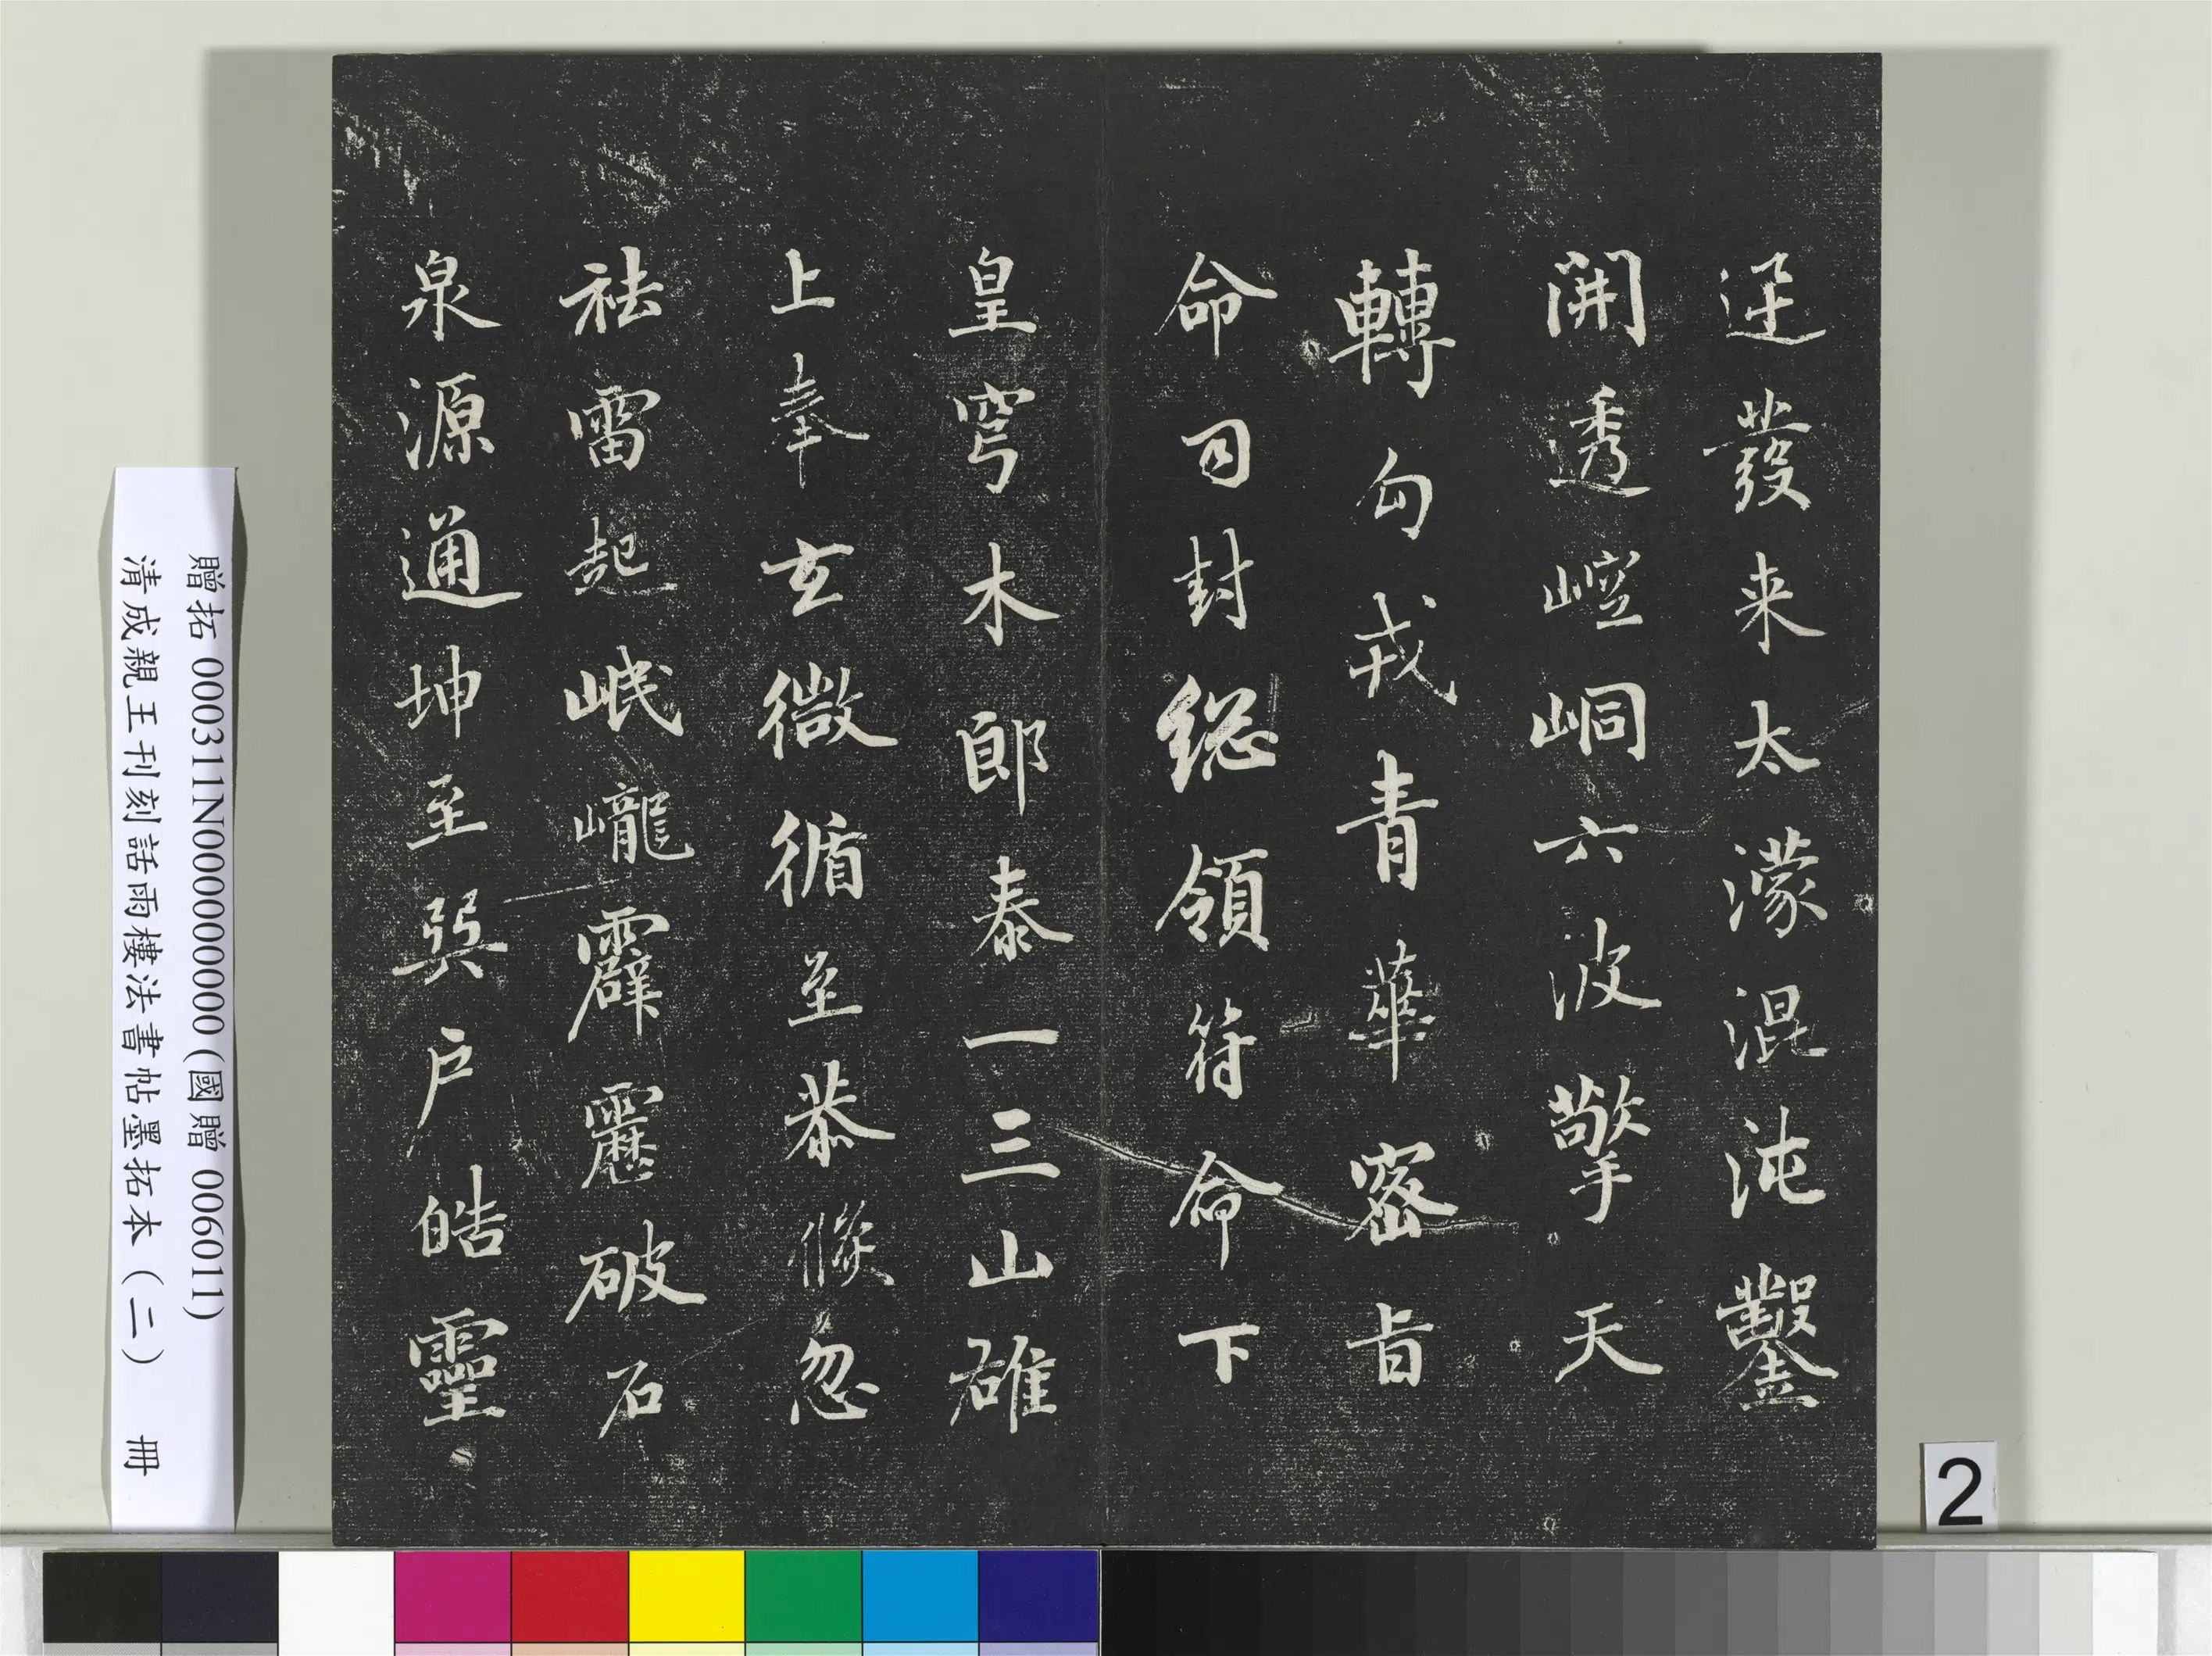 迋發来太濛混沌鑿
開透崆峒六波擎天
轉勾戎青華密旨
命司封総領符命下
皇穹木郎泰一三山雄
上奉玄微循至恭倏忽
祛雷起岷巃霹靂破石
泉源通坤至巽户皓靈
贈拓 000311N000000000(國贈 006011)
清成親王刊刻話雨樓法書帖墨拓本(二) 冊
2